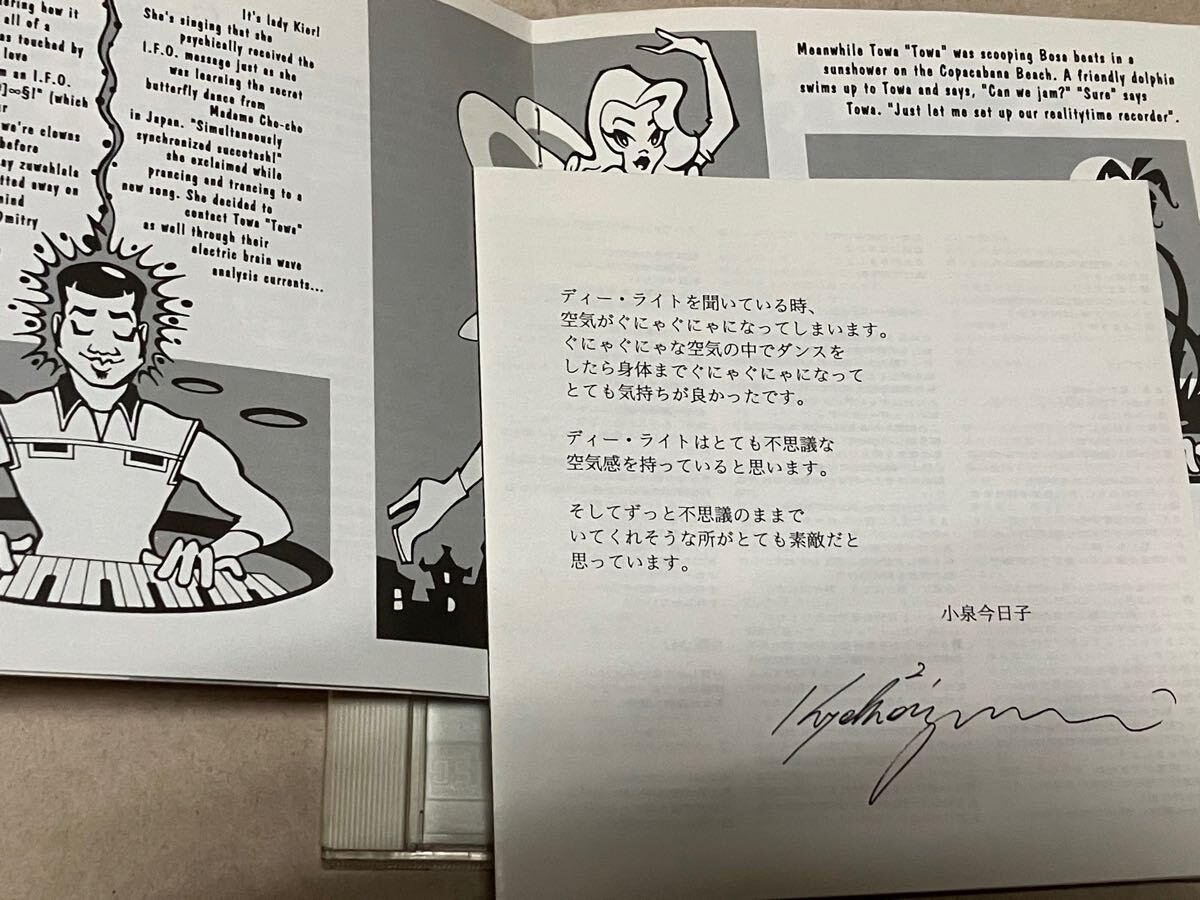 aring how it
all of a
as touched by
love
m an I.F.O.
]∞§!" (which
we're clowns
before
ay zuwahlala
tted away on
mind
Dmitry
It's lady Kier!
She's singing that she
psychically received the
I.F.O. message just as she
was learning the secret
butterfly dance from
Madame Cho-cho
in Japan. "Simultaneously
synchronized succotash!"
she exclaimed while
prancing and trancing to a
new song. She decided to
contact Towa "Towa"
as well through their
electric brain wave
analysis currents...
Meanwhile Towa "Towa" was scooping Bosa beats in a
sunshower on the Copacabana Beach. A friendly dolphin
swims up to Towa and says, "Can we jam?" "Sure" says
Towa. "Just let me set up our realitytime recorder".
ディー・ライトを聞いている時、
空気がぐにゃぐにゃになってしまいます。
ぐにゃぐにゃな空気の中でダンスを
したら身体までぐにゃぐにゃになって
とても気持ちが良かったです。
ディー・ライトはとても不思議な
空気感を持っていると思います。
そしてずっと不思議のままで
いてくれそうな所がとても素敵だと
思っています。
小泉今日子